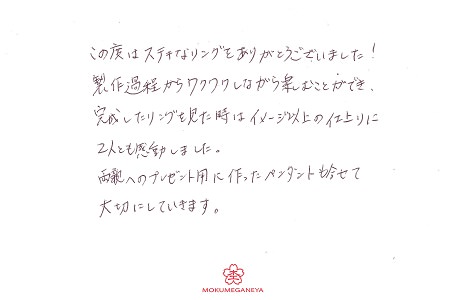 この度はステキなリングをありがとうございました！
製作過程からワクワクしながら楽しむことができ、
完成したリングを見た時はイメージ以上の仕上りに
2人とも感動しました。
両親へのプレゼント用に作ったペンダントも合せて
大切にしていきます。
MOKUMEGANEYA